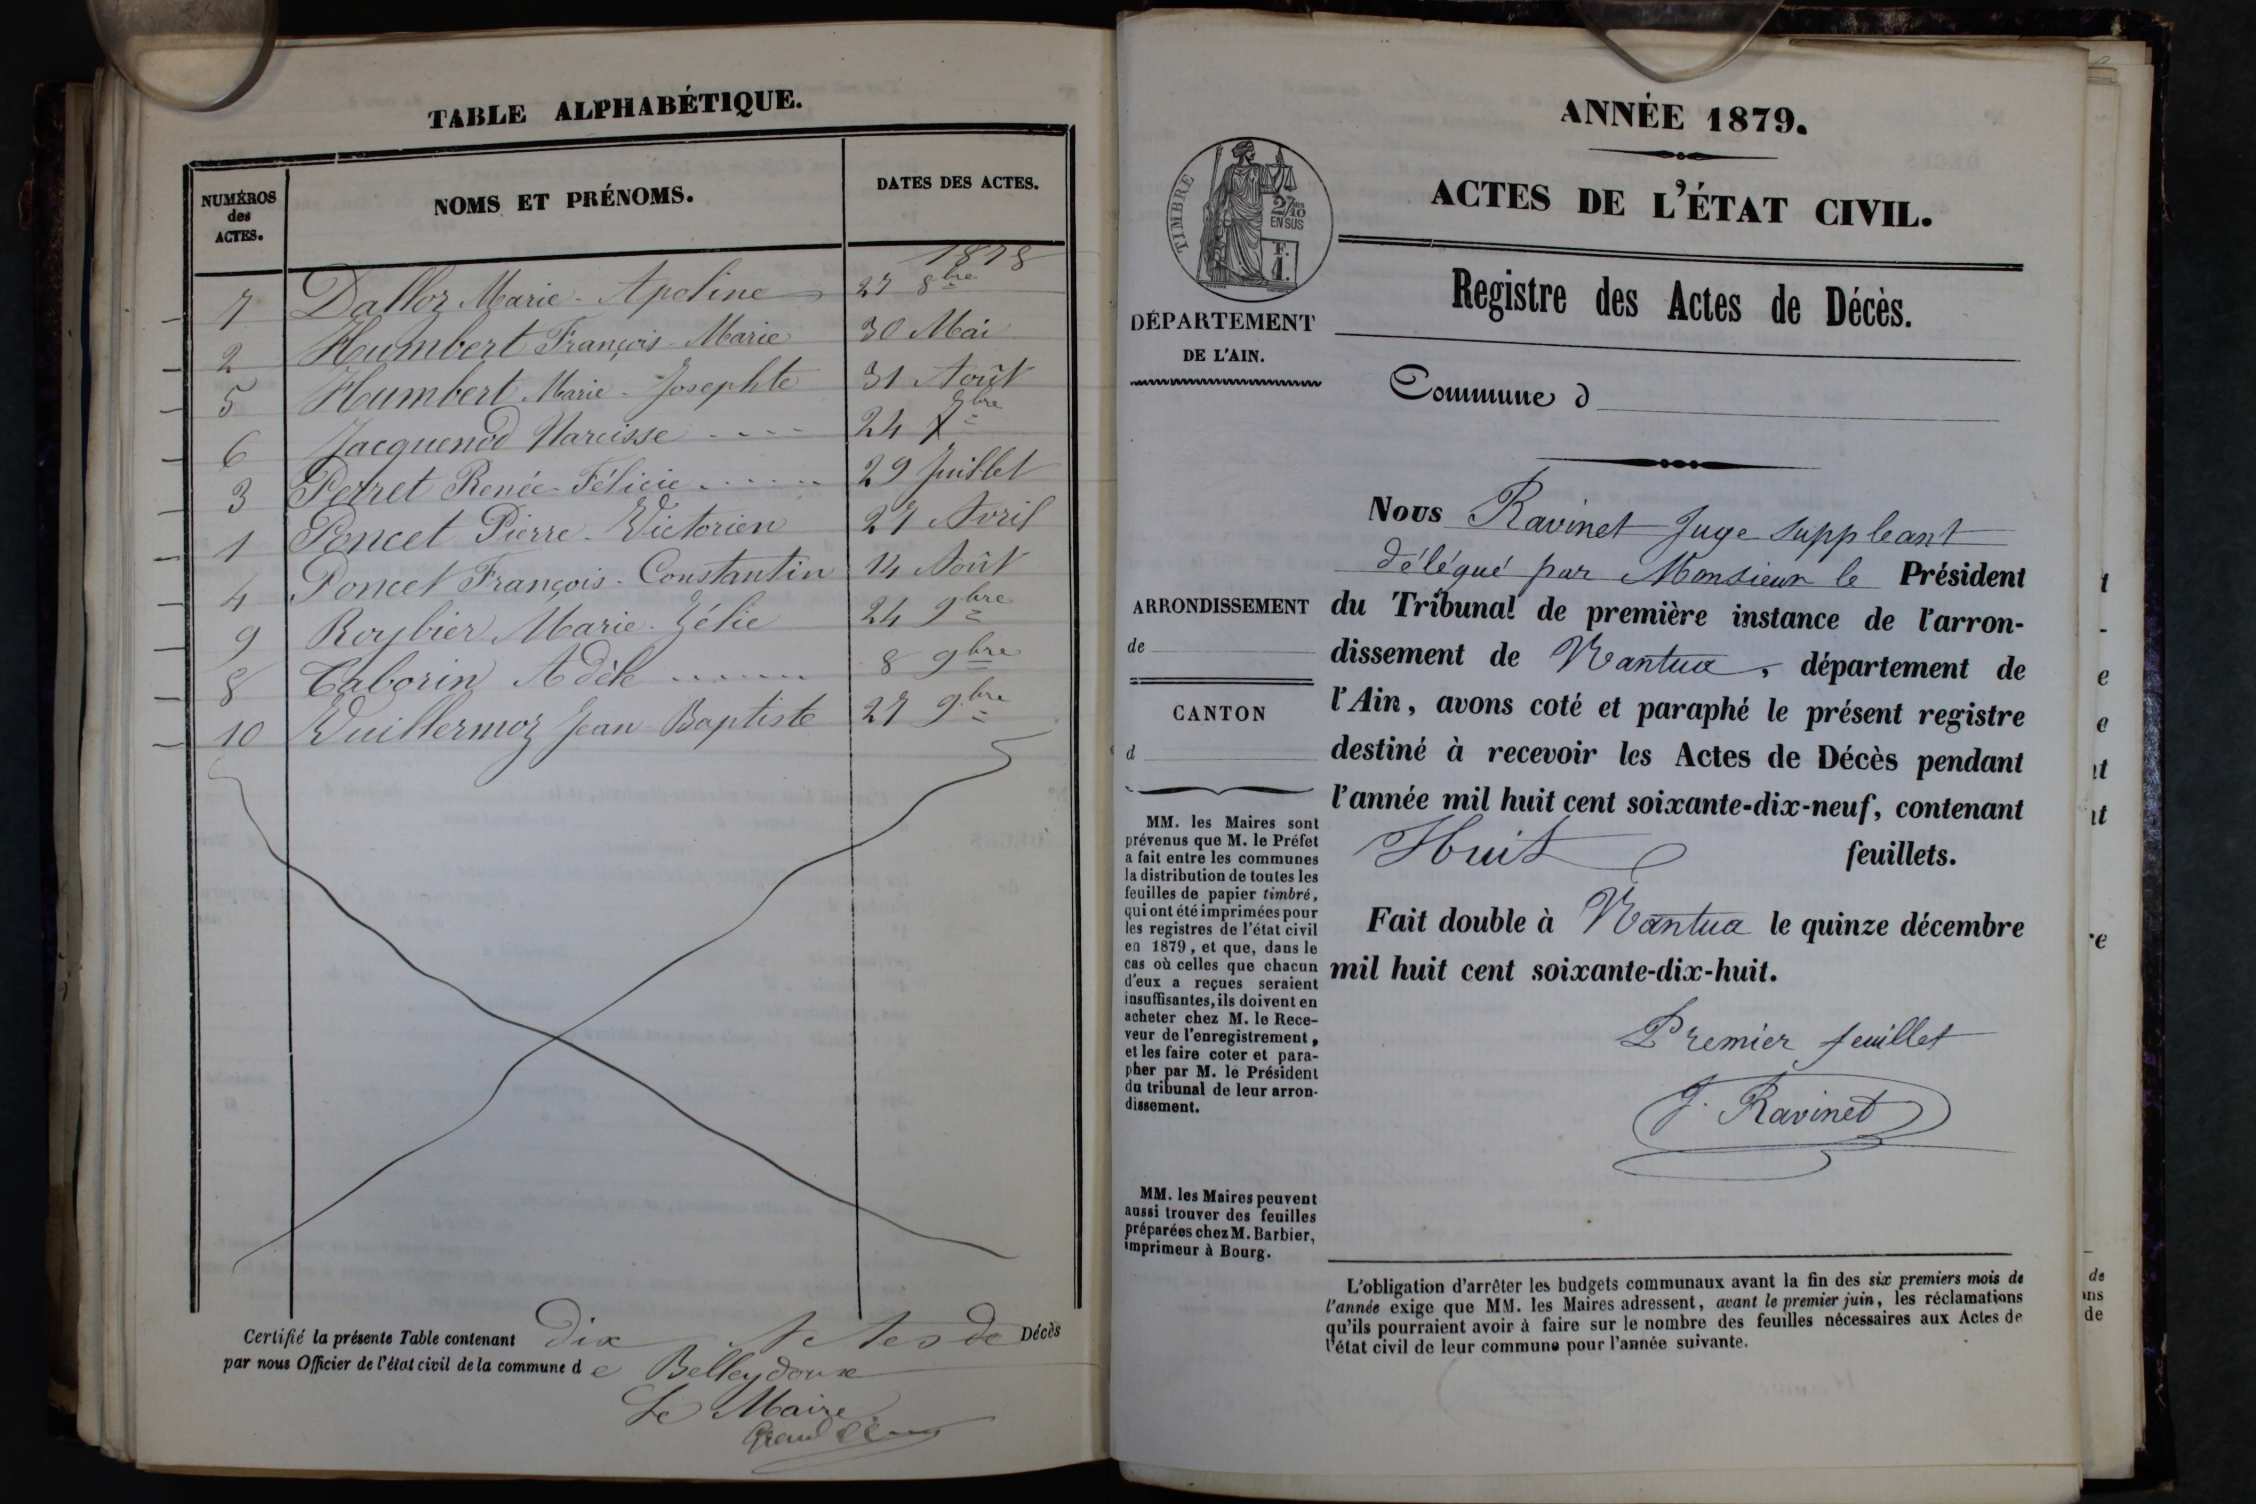 TABLE ALPHABÉTIQUE.
NUMÉROS des ACTES. NOMS ET PRÉNOMS. DATES DES ACTES.
1878
7 Dalloz Marie-Apoline 27 8bre
2 Humbert François-Marie 30 Mai
5 Humbert Marie-Josephte 31 Août
6 Jacquenod Narcisse 24 7bre
3 Perret Renée-Félicie 29 Juillet
1 Poncet Pierre-Victorien 27 Avril
4 Poncet François-Constantin 14 Août
9 Roybier Marie-Zélie 24 9bre
8 Taborin Adèle 8 9bre
10 Vuillermoz Jean Baptiste 27 9bre
Certifié la présente Table contenant dix Actes de Décès
par nous Officier de l'état civil de la commune de Belleydoux
Le Maire
ANNÉE 1879.
ACTES DE L'ÉTAT CIVIL.
TIMBRE
2/10 EN SUS
F. 1.
Registre des Actes de Décès.
DÉPARTEMENT
DE L'AIN.
Commune d
Nous Ravinet Juge suppleant
délégué par Monsieur le Président
du Tribunal de première instance de l'arron-
dissement de Nantua, département de
l'Ain, avons coté et paraphé le présent registre
destiné à recevoir les Actes de Décès pendant
l'année mil huit cent soixante-dix-neuf, contenant
Huit feuillets.
Fait double à Nantua le quinze décembre
mil huit cent soixante-dix-huit.
Premier feuillet
J. Ravinet
ARRONDISSEMENT
de
CANTON
d
MM. les Maires sont
prévenus que M. le Préfet
a fait entre les communes
la distribution de toutes les
feuilles de papier timbré,
qui ont été imprimées pour
les registres de l'état civil
en 1879, et que, dans le
cas où celles que chacun
d'eux a reçues seraient
insuffisantes, ils doivent en
acheter chez M. le Rece-
veur de l'enregistrement,
et les faire coter et para-
pher par M. le Président
du tribunal de leur arron-
dissement.
MM. les Maires peuvent
aussi trouver des feuilles
préparées chez M. Barbier,
imprimeur à Bourg.
L'obligation d'arrêter les budgets communaux avant la fin des six premiers mois de
l'année exige que MM. les Maires adressent, avant le premier juin, les réclamations
qu'ils pourraient avoir à faire sur le nombre des feuilles nécessaires aux Actes de
l'état civil de leur commune pour l'année suivante.